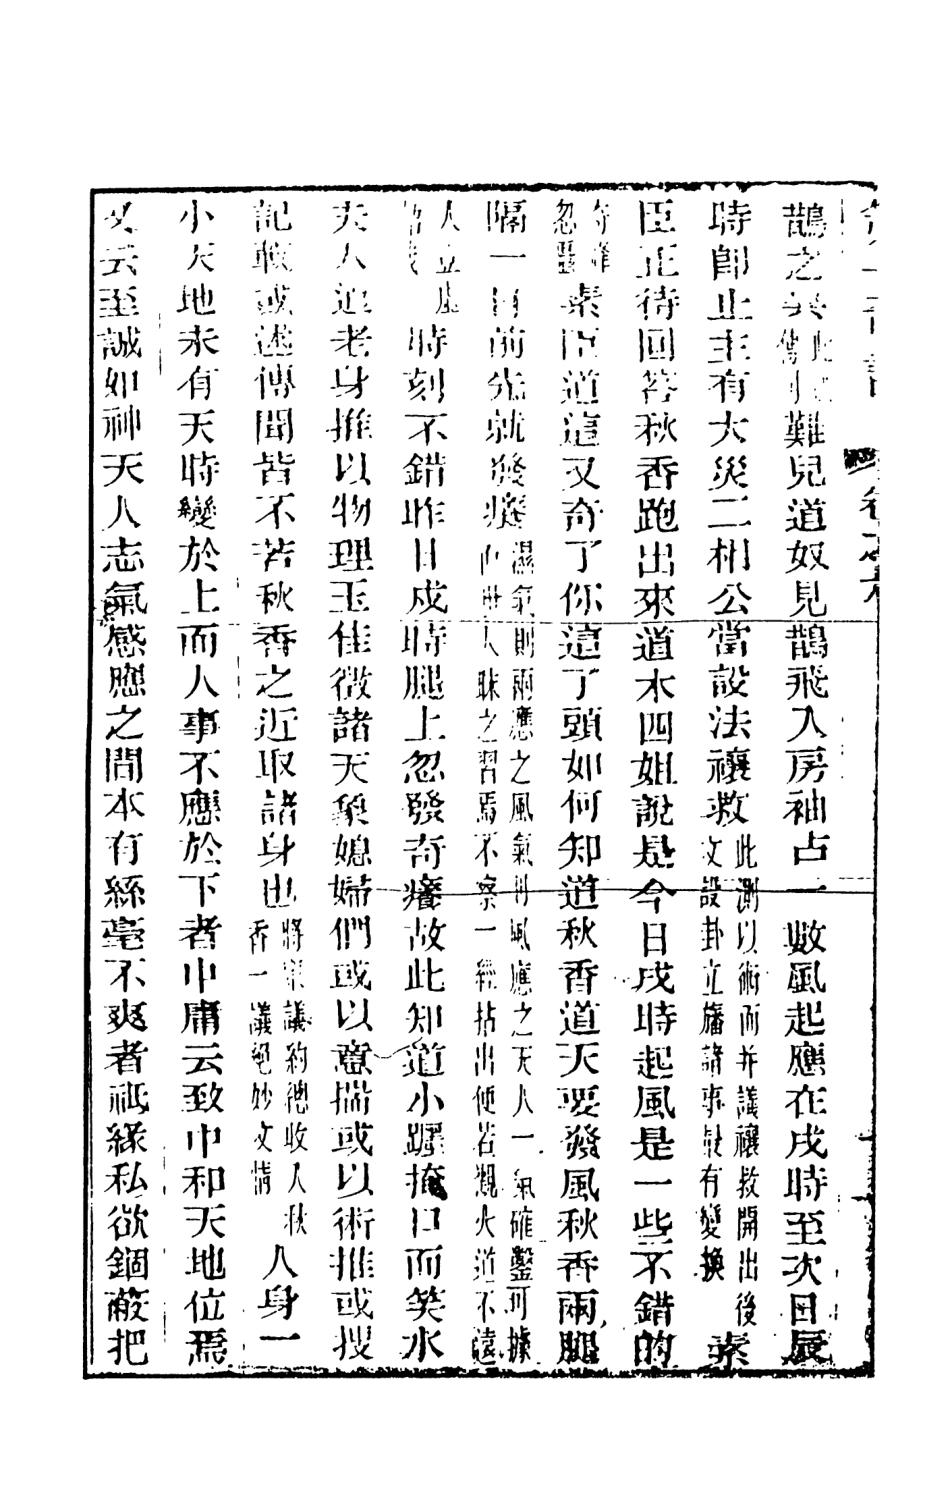 鵲之兴難兒道奴見鵲飛入房袖占一數風起應在戌時至次日辰
時卽止主有大災二相公當設法禳救此測以術而并議禳救開出後文設卦立旛諸事又有變換素
臣正待回答秋香跑出來道木四姐說是今日戌時起風是一些不錯的
素臣道這又奇了你這丫頭如何知道秋香道天要發風秋香兩腿
隔一日前先就發癢濕氣則兩應之風氣則風應之天人一氣確鑿可據世人昧之習焉不察一經拈出便若觀火道不遠
人時刻不錯昨日戌時腿上忽發奇癢故此知道小躔掩口而笑水
夫人道老身推以物理玉佳徵諸天象媳婦們或以意揣或以術推或搜
記載或述傳聞皆不若秋香之近取諸身也將衆議約總收入秋香一議絕妙文情人身一
小天地未有天時變於上而人事不應於下者中庸云致中和天地位焉
又云至誠如神天人志氣感應之間本有絲毫不爽者祗緣私欲錮蔽把